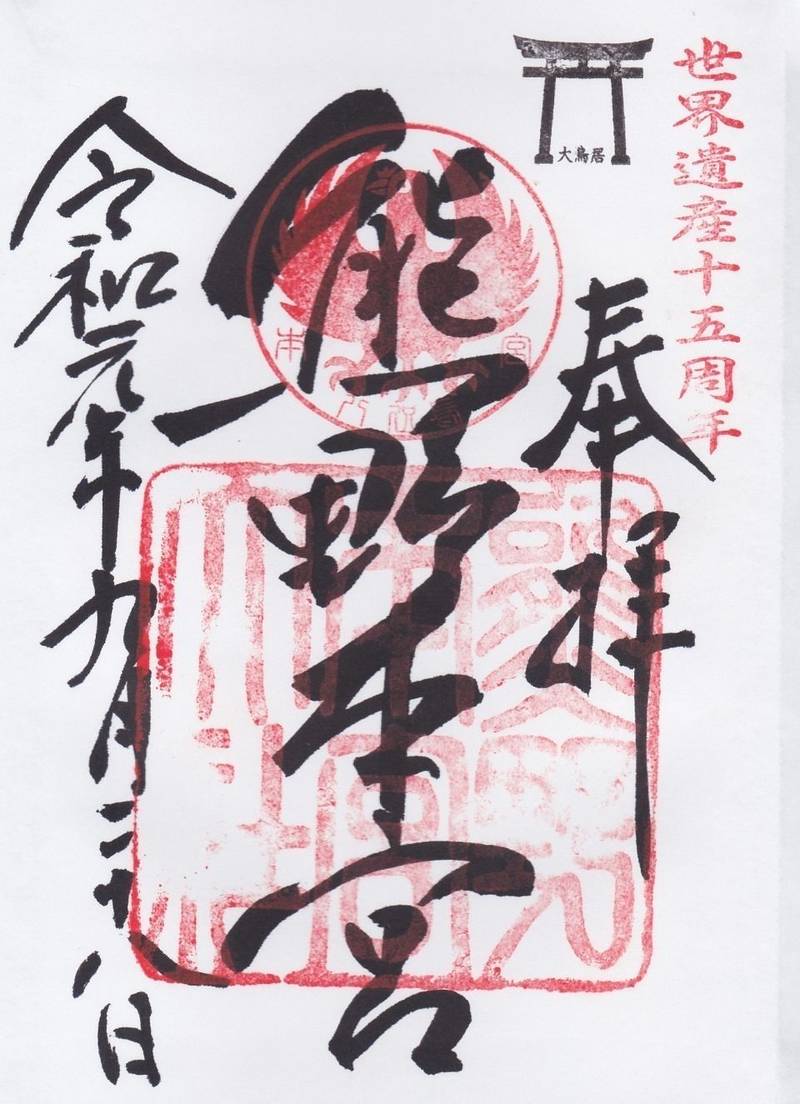 世界遺産十五周年
大鳥居
奉拝
熊野本宮
令和元年九月二十八日